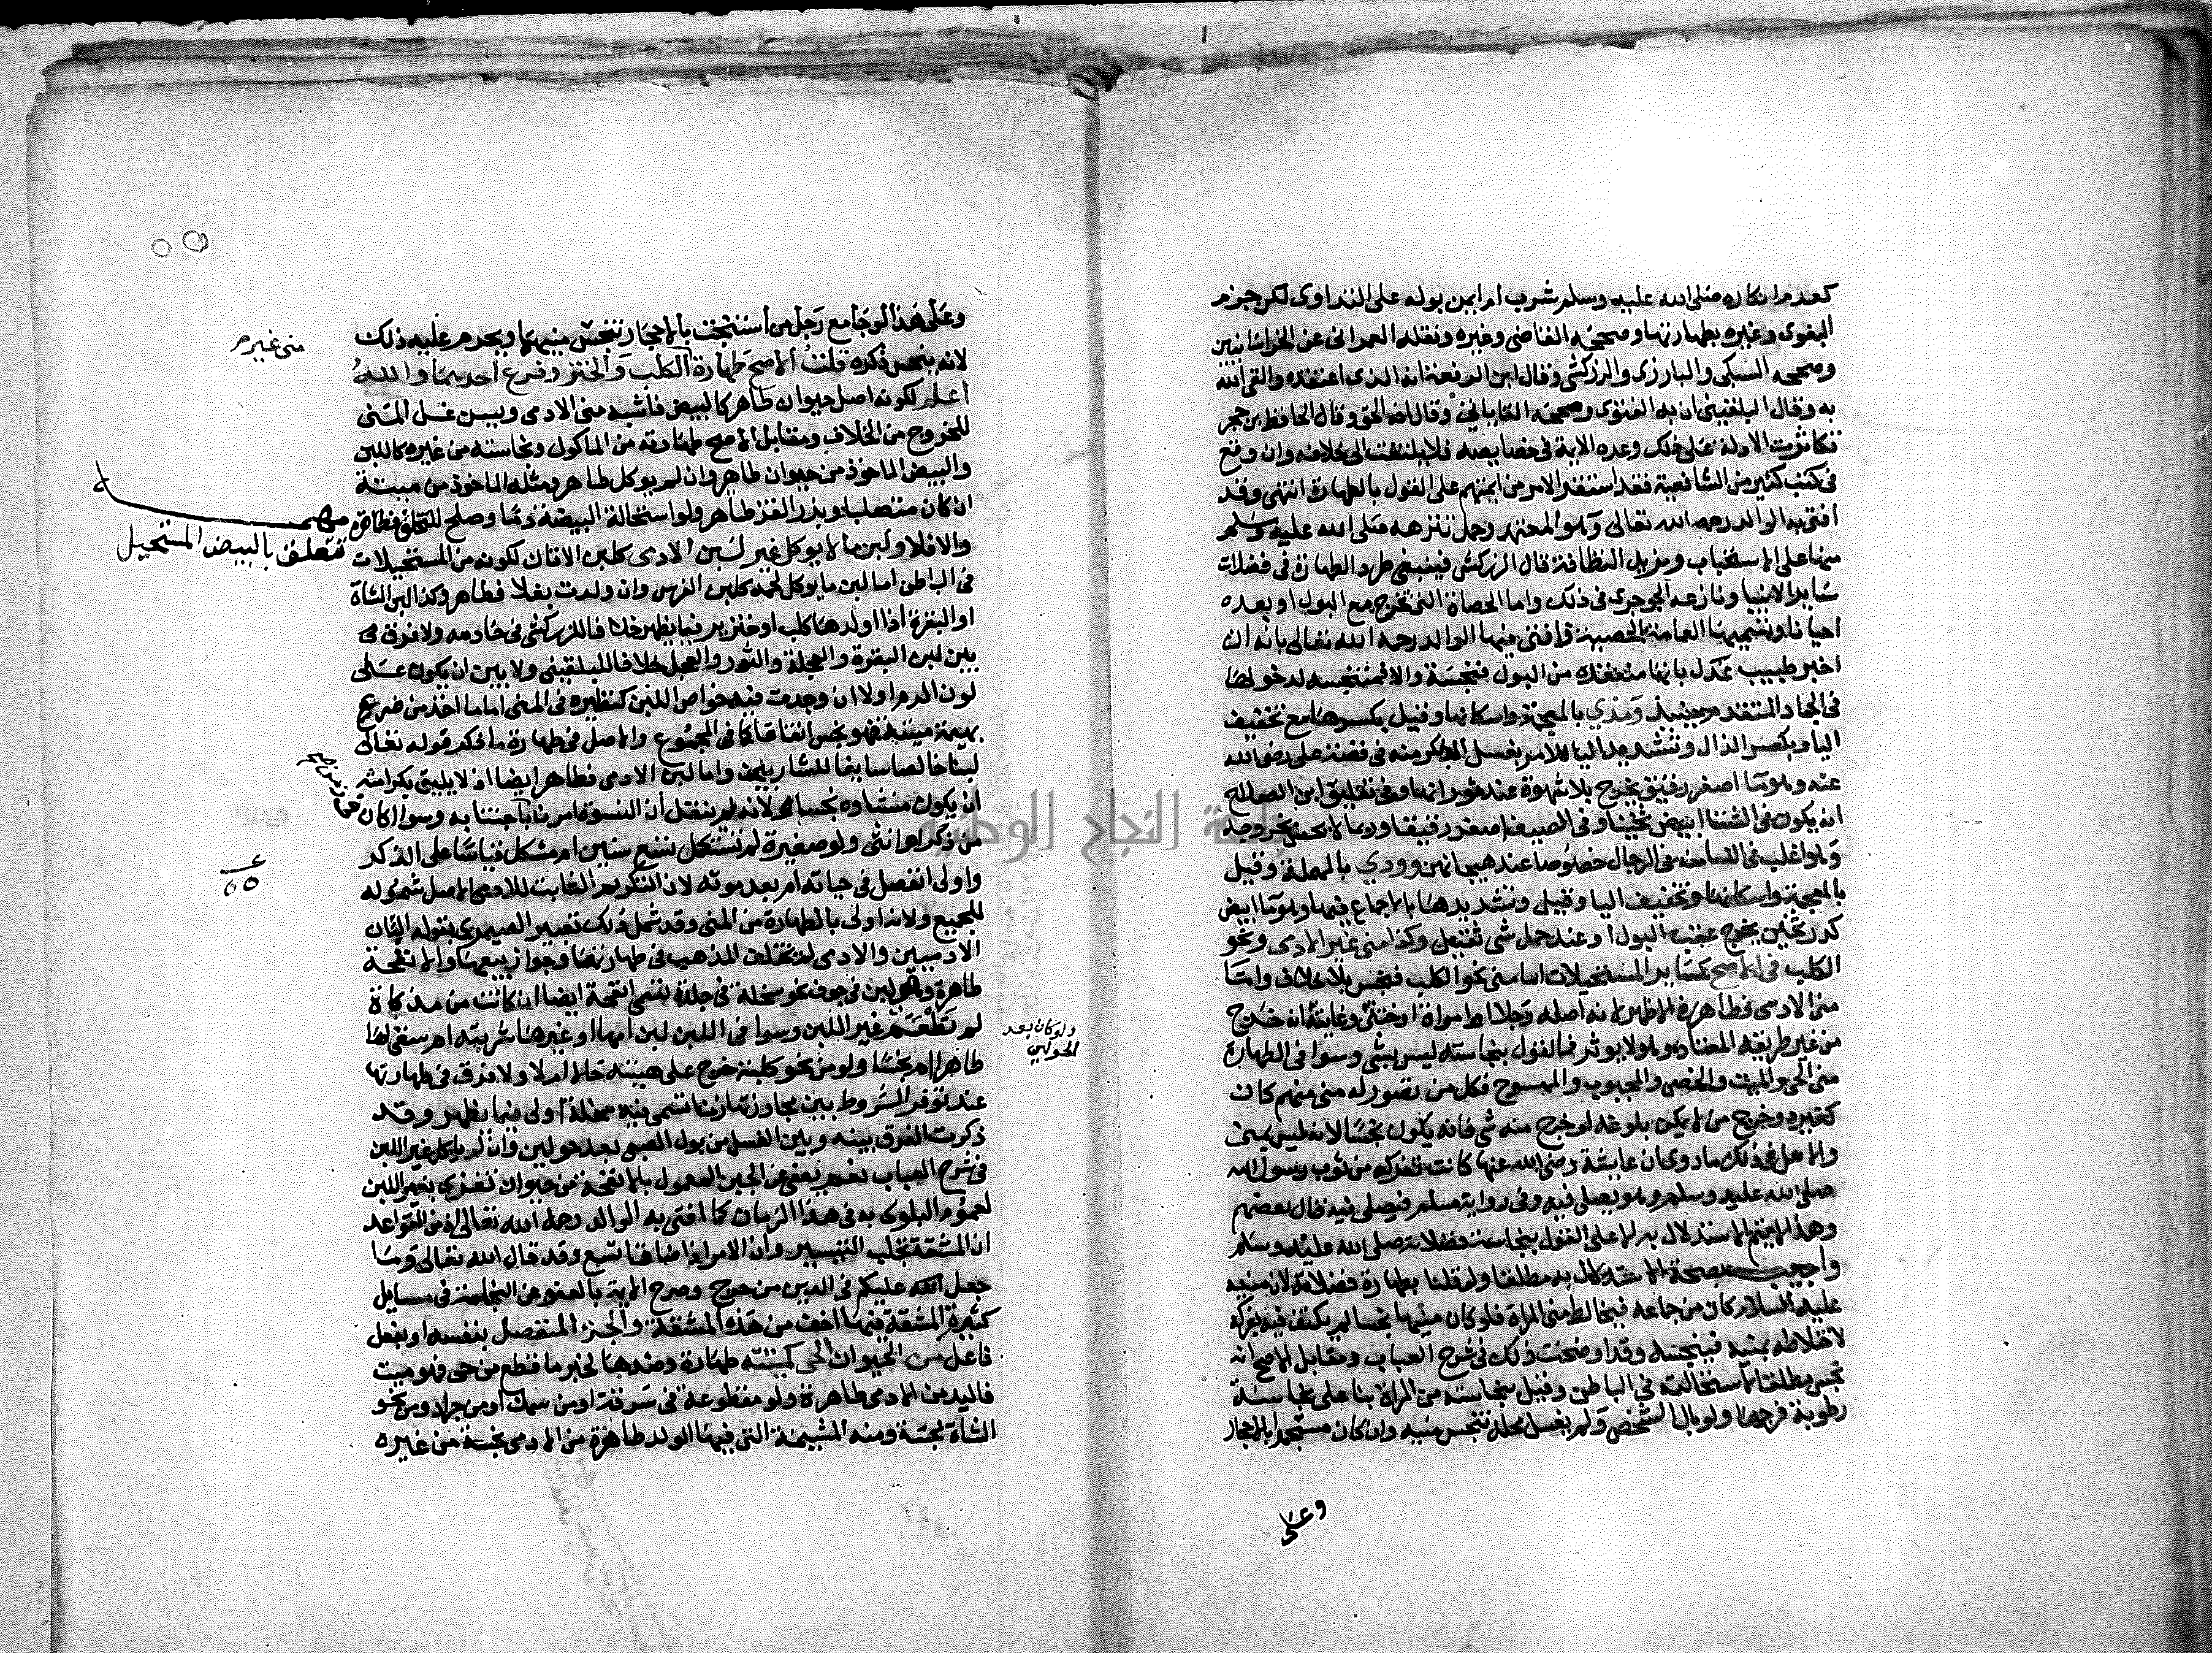 كعدم انكاره صلى الله عليه وسلم شرب ام ايمن بوله على التداوى لكن جزم
البغوى وغيره بطهارتها وصححه القاضى وغيره ونقله العمرانى عن الخراسانيين
وصححه السبكى والبارزى والزركشى وقال ابن الرفعة انه الذى اعتقده والقى الله
به وقال البلقينى ان به الفتوى وصححه القاياتى وقال انه الحق وقال الحافظ بن حجر
تكاثرت الادلة على ذلك وعده الايمة فى خصايصه فلا يلتفت الى خلافه وان وقع
فى كتب كثير من الشافعية فقد استقر الامر من ايمتهم على القول بالطهارة انتهى وقد
افتى به الوالد رحمه الله تعالى وهو المعتمد وحمل تنزهه صلى الله عليه وسلم
منها على الاستحباب ومزيد النظافة قال الزركشى فينبغى طرد الطهارة فى فضلات
ساير الانبيا ونازعه الجوجرى فى ذلك واما الحصاة التى تخرج مع البول او بعده
احيانا وتسميها العامة الحصية فافتى فيها الوالد رحمه الله تعالى بانه ان
اخبر طبيب عدل بانها منعقدة من البول فنجسة والا فمتنجسة لدخولها
فى الجامد المتقدم ومذي بالمعجمة واسكانها وقيل بكسرها مع تخفيف
اليا وبكسر الذال وتشديد اليا للامر بغسل الذكر منه فى قصة على رضى الله
عنه وهو ما اصفر رقيق يخرج بلا شهوة عند ثورانها وفى تعليق ابن الصلاح
انه يكون فى الشتا ابيض ثخينا وفى الصيف اصفر رقيقا وربما لا يحس بخروجه
وهو اغلب فى النسا منه فى الرجال خصوصا عند هيجانهن وودي بالمهملة وقيل
بالمعجمة واسكانها وتخفيف اليا وقيل وتشديدها بالاجماع فيهما وهو ما ابيض
كدر ثخين يخرج عقب البول او عند حمل شى ثقيل وكذا منى غير الادمى ونحو
الكلب فى الاصح كساير المستحيلات اما منى نحو الكلب فنجس بلا خلاف واما
منى الادمى فطاهر فى الاظهر لانه اصله رجلا او امراة او خنثى وغايته انه خرج
من غير طريقه المعتاد وهو لا يوثر فالقول بنجاسته ليس بشى وسوا فى الطهارة
منى الحى والميت والخصى والمجبوب والممسوح فكل من تصور له منى منهم كان
كغيره وخرج من لا يمكن بلوغه لو خرج منه شى فانه يكون نجسا لانه ليس بمنى
والاصل فى ذلك ما روى ان عايشة رضى الله عنها كانت تفركه من ثوب رسول الله
صلى الله عليه وسلم وهو يصلى فيه وفى رواية مسلم فيصلى فيه قال بعضهم
وهذا لا يتم الاستدلال به الا على القول بنجاسة فضلاته صلى الله عليه وسلم
واجيب بصحة الاستدلال به مطلقا ولو قلنا بطهارة فضلاته لان منيه
عليه السلام كان من جماعه فيخالط منى المراة فلو كان منيها نجسا لم يكتف فيه بفركه
لاختلاطه بمنيه فينجسه وقد اوضحت ذلك فى شرح العباب ومقابل الاصح انه
نجس مطلقا لاستحالته فى الباطن وقيل بنجاسته من المراة بنا على نجاسة
رطوبة فرجها ولو بال الشخص ولم يغسل محله تنجس منيه وان كان مستجمرا بالاحجار
وعلى
وعلى هذا لو جامع رجل من استنجت بالاحجار تنجس منيهما ويحرم عليه ذلك
لانه ينجس ذكره قلت الاصح طهارة منى غير الكلب والخنزير وفرع احدهما والله
اعلم لكونه اصل حيوان طاهر كالبيض فاشبه منى الادمى ويسن غسل المنى
للخروج من الخلاف ومقابل الاصح طهارته من الماكول ونجاسته من غيره كاللبن
والبيض الماخوذ من حيوان طاهر وان لم يوكل طاهر ومثله الماخوذ من ميتة
ان كان متصلبا وبزر القز طاهر ولو استحالة البيضة دما وصلح للتخلق فطاهرة
والا فلا ولبن ما لا يوكل غير لبن الادمى كلبن الاتان لكونه من المستحيلات
فى الباطن اما لبن ما يوكل لحمه كلبن الفرس وان ولدت بغلا فطاهر وكذا لبن الشاة
او البقرة اذا اولدها كلب او خنزير فيما يظهر خلافا للزركشى فى خادمه ولا فرق فى
بين لبن البقرة والعجلة والثور والعجل خلافا للبلقينى ولا بين ان يكون على
لون الدم اولا ان وجدت فيه خواص اللبن كنظيره فى المنى اما ما اخذ من ضرع
بهيمة ميتة فهو نجس اتفاقا كما فى المجموع والاصل فى طهارة ما ذكر قوله تعالى
لبنا خالصا سايغا للشاربين واما لبن الادمى فطاهر ايضا اذ لا يليق بكرامته
ان يكون منشاوه نجسا ولانه لم ينقل ان النسوة امرن باجتنابه وسوا اكان
من ذكر ام انثى ولو صغيرة لم تستكمل تسع سنين ام مشكل قياسا على الذكر
واولى انفصل فى حياته ام بعد موته لان التكريم الثابت للادمى الاصل شموله
للجميع ولانه اولى بالطهارة من المنى وقد شمل ذلك تعبير الصيمرى بقوله البان
الادميين والادمى لم يختلف المذهب فى طهارتها وجواز بيعها والانفحة
طاهرة وهى لبن فى جوف نحو سخلة فى جلدة تسمى انفحة ايضا ان كانت من مذكاة
لم تطعم غير اللبن وسوا فى اللبن لبن امها او غيرها شربته ام سقى لها
طاهرا ام نجسا ولو من نحو كلبة خرج على هيئته حالا ام لا ولا فرق فى طهارتها
عند توفر الشروط بين مجاوزتها زمنا تسمى فيه سخلة اولى فيما يظهر وقد
ذكرت الفرق بينه وبين الغسل من بول الصبى بعد حولين وان لم ياكل غير اللبن
فى شرح العباب نعم يعفى عن الجبن المعمول بالانفحة من حيوان تغذى بغير اللبن
لعموم البلوى به فى هذا الزمان كما افتى به الوالد رحمه الله تعالى اذ من القواعد
ان المشقة تجلب التيسير وان الامر اذا ضاق اتسع وقد قال الله تعالى وما
جعل الله عليكم فى الدين من حرج وصرح الايمة بالعفو عن النجاسة فى مسايل
كثيرة المشقة فيها اخف من هذه المشقة والجزء المنفصل بنفسه او بفعل
فاعل من الحيوان الحى كميتته طهارة وضدها لخبر ما قطع من حى فهو ميت
فاليد من الادمى طاهرة ولو مقطوعة فى سرقة او من سمك او من جراد ومن نحو
الشاة نجسة ومنه المشيمة التى فيها الولد طاهرة من الادمى نجسة من غيره
منى غير م
مهمه
تتعلق بالبيض المستحيل
ولو كان بعد
الحولين
جامعة النجاح الوطنية